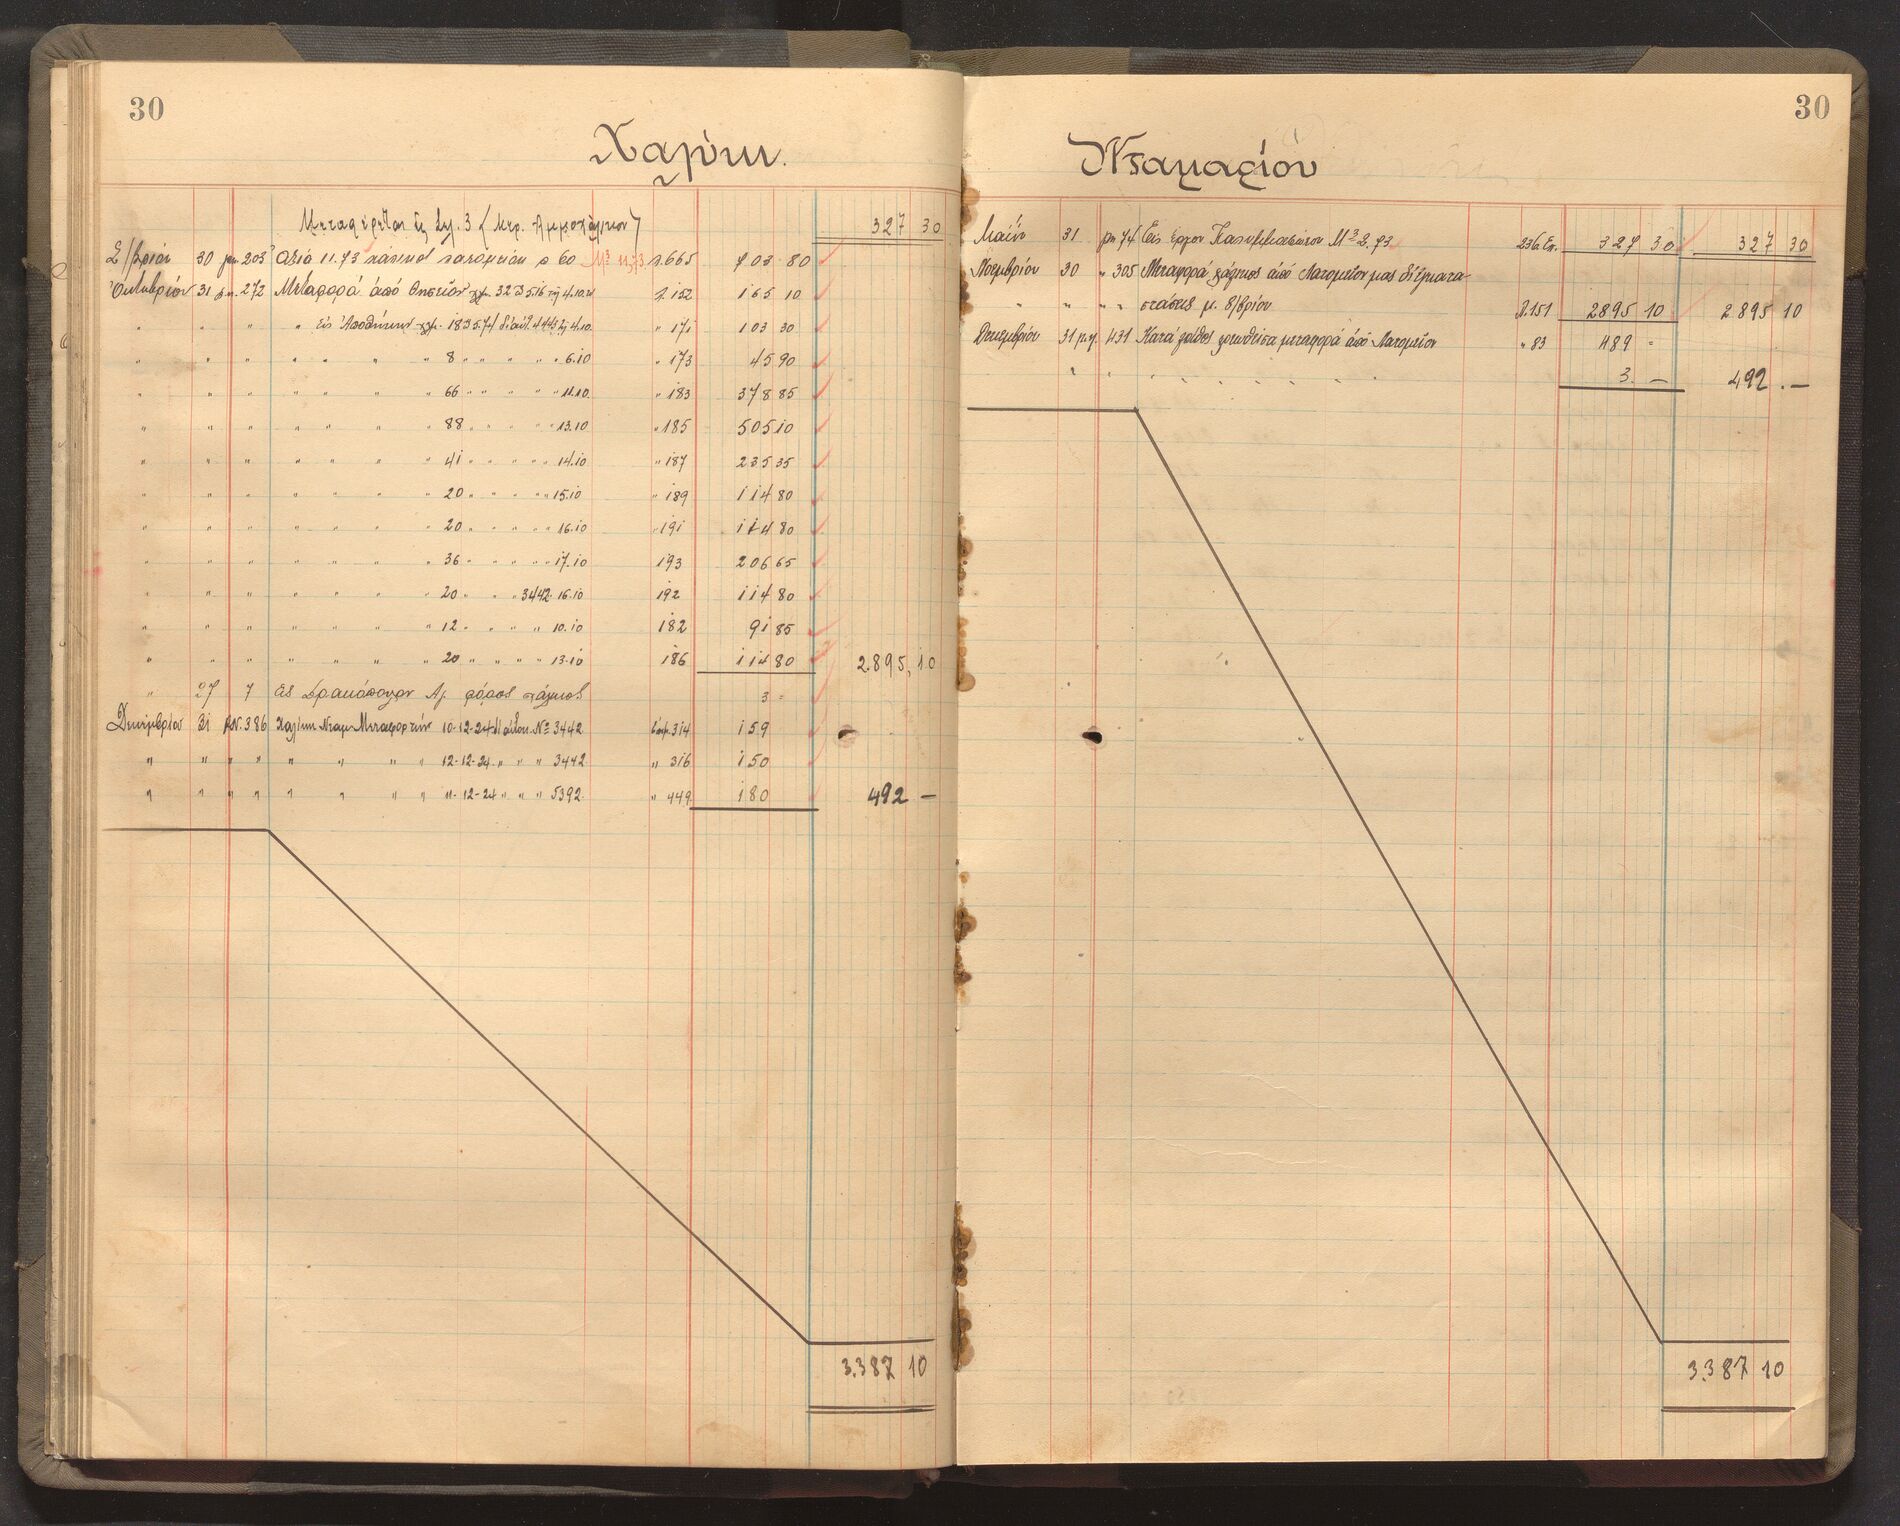 30
Χαλίκι.
Μεταφέρεται εις Σελ. 3 (Μερ. Αμμοχάλικου) 327 30
Σ/βρίου 30 ημ. 203 Αξία 11.73 χάλικος λατομείου π 60 Μ3 11,73 1.665 703 80
Οκτωβρίου 31 ημ. 272 Μεταφορά από Θησείον χλμ. 32 π 5.16 της 4.10.24 1.152 165 10
" " " " Εις Αποθήκην χλμ. 18 π 5.74 δι' αυτ. 4445 της 4.10. " 171 103 30
" " " " " " " 8 " " " " " 6.10 " 173 45 90
" " " " " " " 66 " " " " " 11.10. " 183 378 85
" " " " " " " 88 " " " " " 13.10 " 185 505 10
" " " " " " " 41 " " " " " 14.10 " 187 235 35
" " " " " " " 20 " " " " " 15.10 " 189 114 80
" " " " " " " 20 " " " " " 16.10 " 191 114 80
" " " " " " " 36 " " " " " 17.10 193 206 65
" " " " " " " 20 " " " 3442 16.10 192 114 80
" " " " " " " 12 " " " " 10.10 182 91 85
" " " " " " " 20 " " " " " 13.10 186 114 80 2.895,10
" 27 7 Εις Δρακόπουλον Αγ. φόρος χάλικος 3 =
Δεκεμβρίου 31 ημ. 386 Χαλίκι Νταμ. Μεταφορτών 10-12-24 δι' αυτοκ. Νο 3442 314 159
" " " " " " " " 12-12-24 " " " 3442 " 316 150
" " " " " " " " 11-12-24 " " " 5392 " 449 180 492 —
3.387 10
30
Νταμαρίου
Μαΐου 31 ημ 74 Εις έργον Μ3 2.73 236 Επ. 327 30 327 30
Νοεμβρίου 30 " 305 Μεταφορά χάλικος από Λατομείον μας δι' εγκατα-
" " " " στάσεις μ. 8/βρίου Λ.151 2895 10 2.895 10
Δεκεμβρίου 31 ημ. 431 Κατά λάθος χρεωθείσα μεταφορά από Λατομείον " 83 489 =
" " " " " " " " " 3. — 492. —
3.387 10